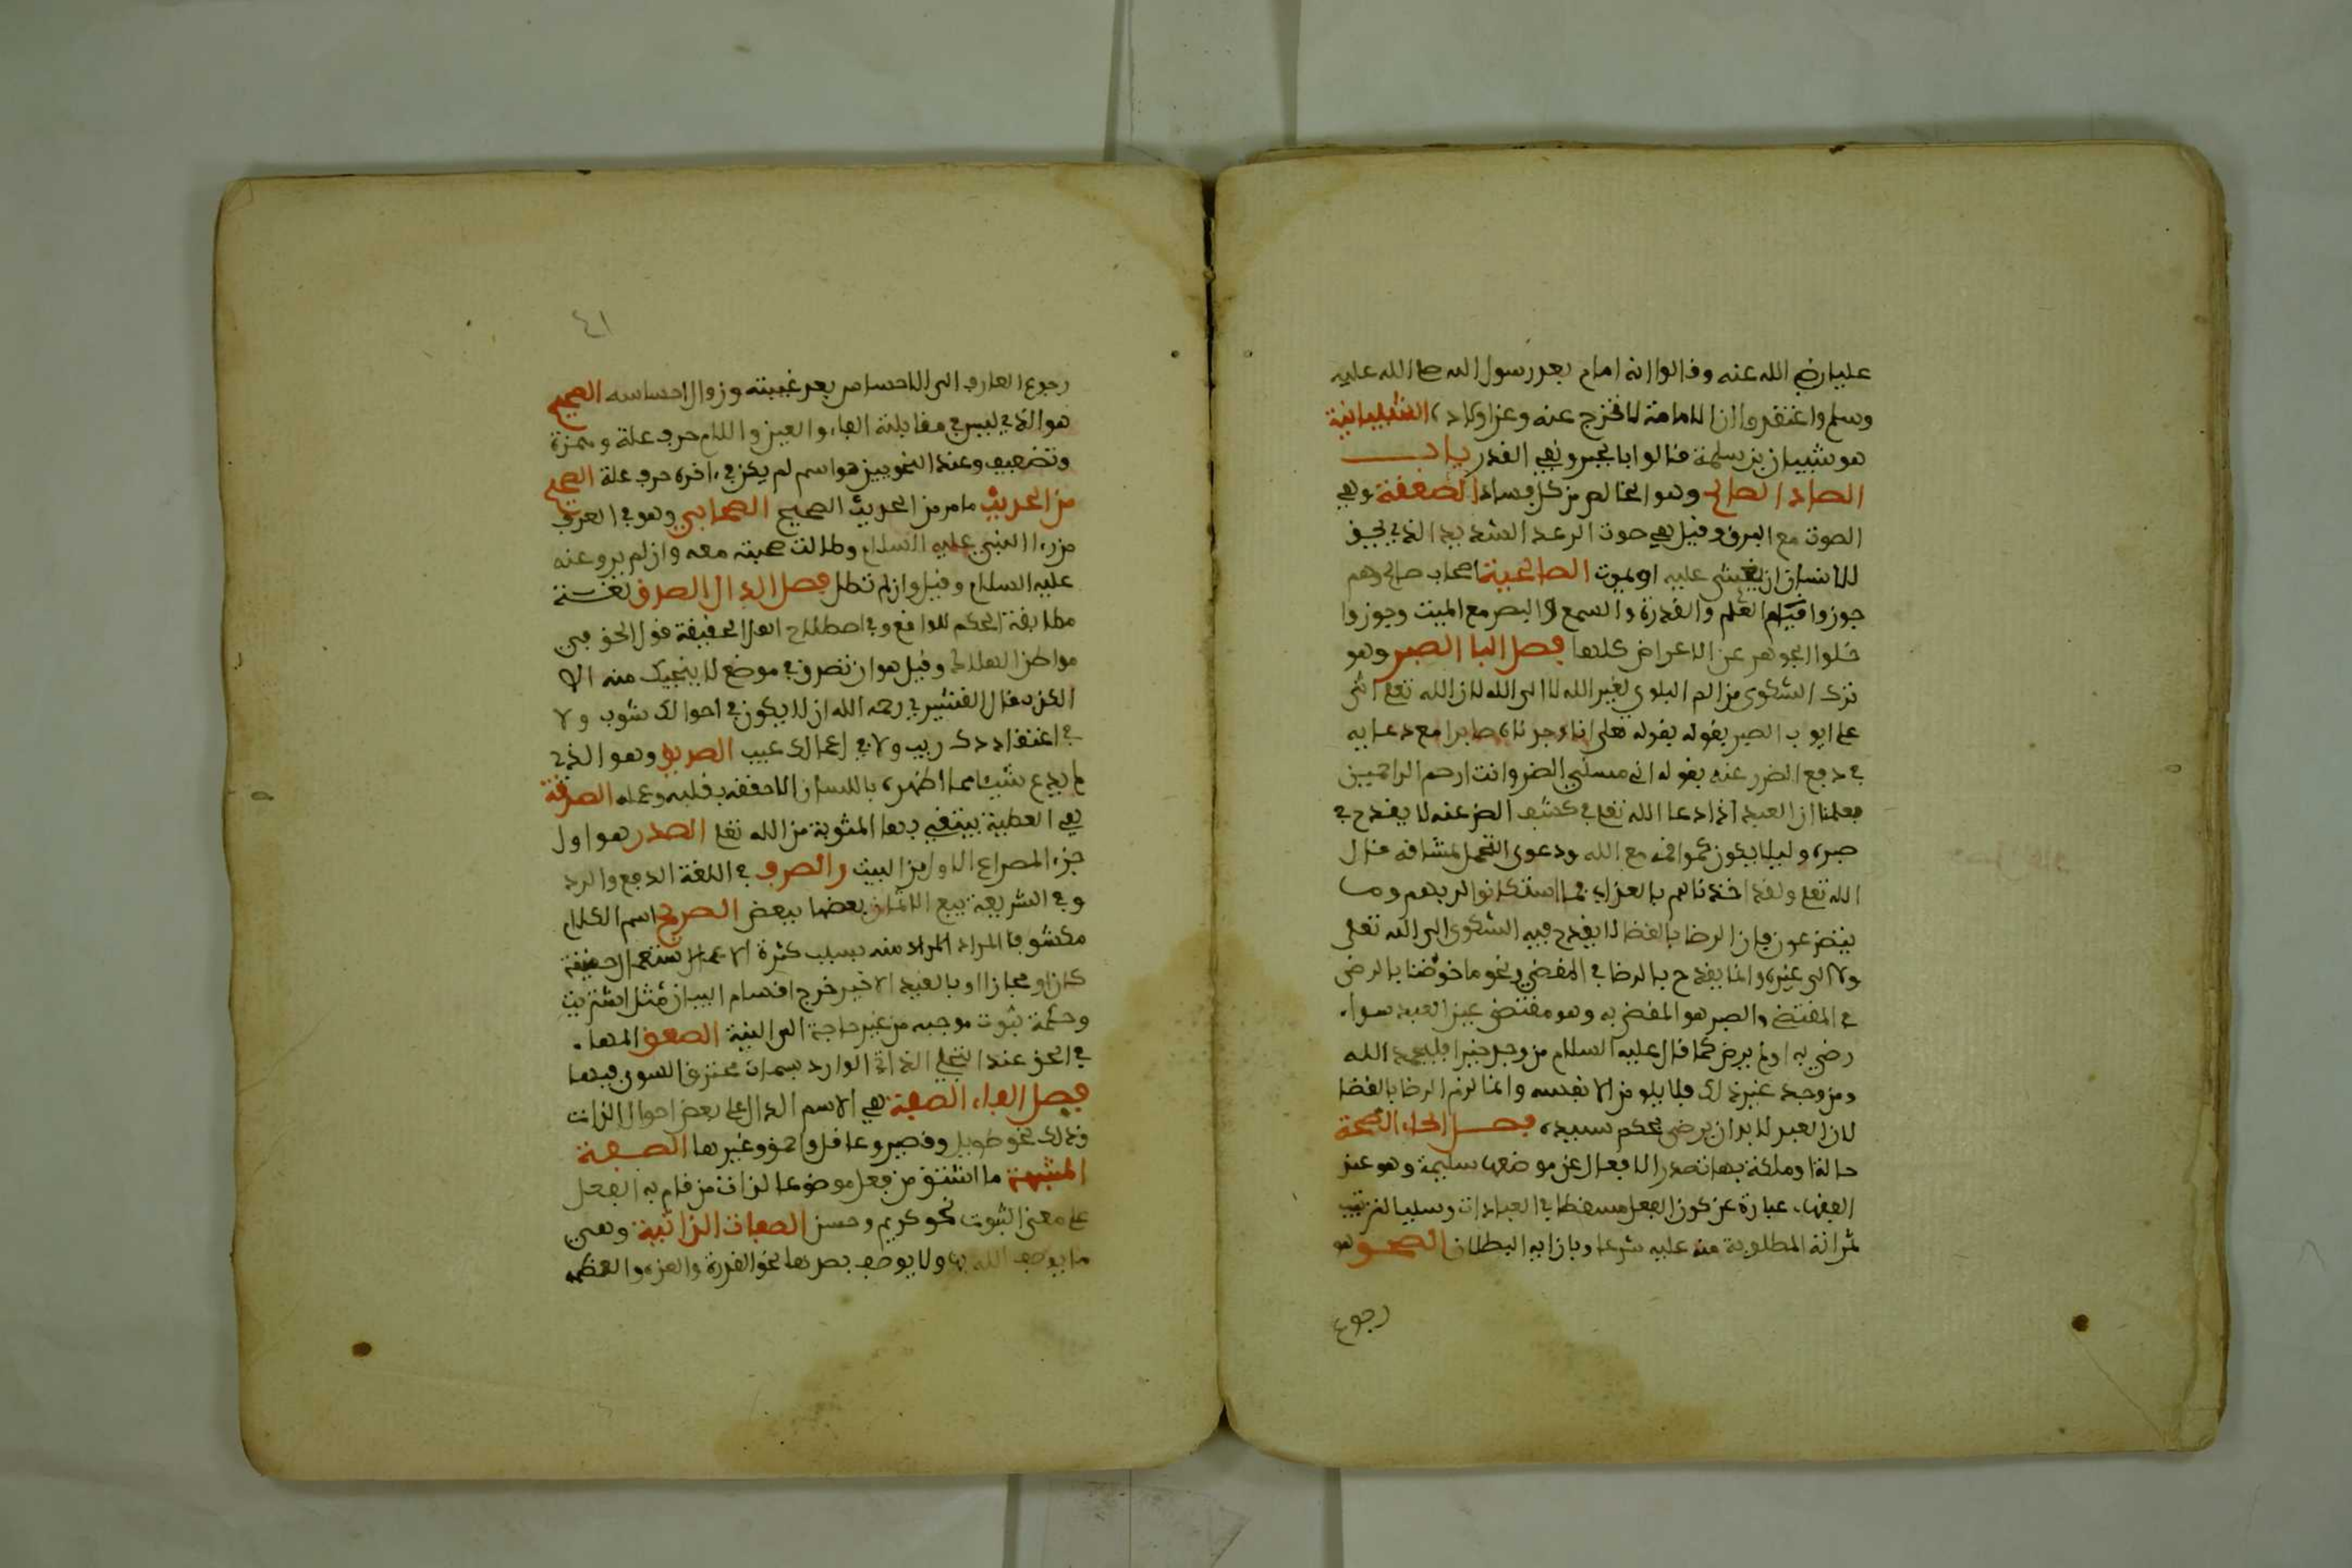 عليا رضي الله عنه وقالوا انه امام بعد رسول الله صلى الله عليه
وسلم واعتقدوا ان الامامة لا تخرج عنه وعن اولاده الشيبانية
هو شيبان بن سلمة قالوا بالجبر ونفي القدر باب
الصاد الصالح وهو الخالص من كل فساد الصعقة وهي
الصوت مع البرق وقيل هي صوت الرعد الشديد الذي يحق
للانسان ان يغشى عليه او يموت الصالحية اصحاب صالح وهم
جوزوا قيام العلم والقدرة والسمع والبصر مع الميت وجوزوا
خلوا الجوهر عن الاعراض كلها فصل البا الصبر وهو
ترك الشكوى من الم البلوى لغير الله لا الى الله لان الله تعلى اثنى
على ايوب الصبر بقوله بقوله تعلى انا وجدناه صابرا مع دعايه
في دفع الضرر عنه بقوله اني مسني الضر وانت ارحم الراحمين
فعلمنا ان العبد اذا دعا الله تعلى في كشف الضر عنه لا يقدح في
صبره وليلا يكون كموافقه مع الله ودعوى التحمل لمشاقه قال
الله تعلى ولقد اخذناهم بالعذاب فما استكانوا لربهم وما
يتضرعون فان الرضا بالقضا لا يقدح فيه الشكوى الى الله تعلى
ولا الى غيره وانما يقدح بالرضا في المقضي ونحو ما خوطبنا بالرضى
في المقتضى والصبر هو المقضي به وهو مقتضى عين العبد سواء
رضي به او لم يرض كما قال عليه السلام من وجد خيرا فليحمد الله
ومن وجد غير ذلك فلا يلومن الا نفسه وانما لزم الرضا بالقضا
لان العبد لا بد ان يرضى بحكم سيده فصل الحاء الصحة
حالة او ملكة بها تصدر الافعال عن موضعها سليمة وهو عند
الفقهاء عبارة عن كون الفعل مسقطا في العبادات وسببا لترتيب
ثمراته المطلوبة منه عليه شرعا وبازايه البطلان الصحو هو
رجوع
٤١
رجوع العارف الى الاحساس بعد غيبته وزوال احساسه الصحيح
هو الذي ليس في مقابلة الفاء والعين واللام حرف علة وهمزة
وتضعيف وعند النحويين هو اسم لم يكن في اخره حرف علة الصحيح
من الحديث ما مر من الحديث الصحيح الصحابي وهو في العرف
من راا النبي عليه السلام وطالت صحبته معه وان لم يرو عنه
عليه السلام وقيل وان لم تطل فصل الدال الصدق لغة
مطابقة الحكم للواقع وفي اصطلاح اهل الحقيقة قول الحق في
مواطن الهلاك وقيل هو ان تصدق في موضع لا ينجيك منه الا
الكذب قال القشيري رحمه الله ان لا يكون في احوالك شوب ولا
في اعتقادك ريب ولا في اعمالك عيب الصديق وهو الذي
لم يدع شيئا مما اظهره باللسان الا حققه بقلبه وعمله الصدقة
هي العطية يبتغي بها المثوبة من الله تعلى الصدر هو اول
جزء المصراع الاول من البيت والصرف في اللغة الدفع والرد
وفي الشريعة بيع الاثمان بعضها ببعض الصريح اسم لكلام
مكشوف المراد المراد منه بسبب كثرة الاستعمال حقيقة
كان او مجازا او بالقيد الاخير خرج اقسام البيان مثل اشتريت
وحكمة ثبوت موجبه من غير حاجة الى النية الصعق المها
في الحق عند التجلي الذاتي الوارد بسبحات يحترق السوى فيها
فصل الفاء الصفة هي الاسم الدال على بعض احوال الذات
وذلك نحو طويل وقصير وعاقل واحمق وغيرها الصفة
المشبهة ما اشتق من فعل موضوعا لذات من قام به الفعل
على معنى الثبوت نحو كريم وحسن الصفات الذاتية وهي
ما يوصف الله بها ولا يوصف بضدها نحو القدرة والعزة والعظمة